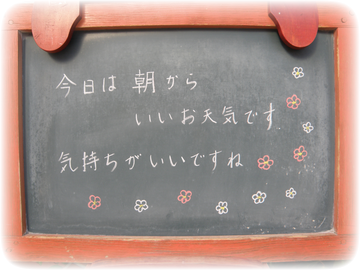 今日は 朝から
いいお天気です.
気持ちがいいですね